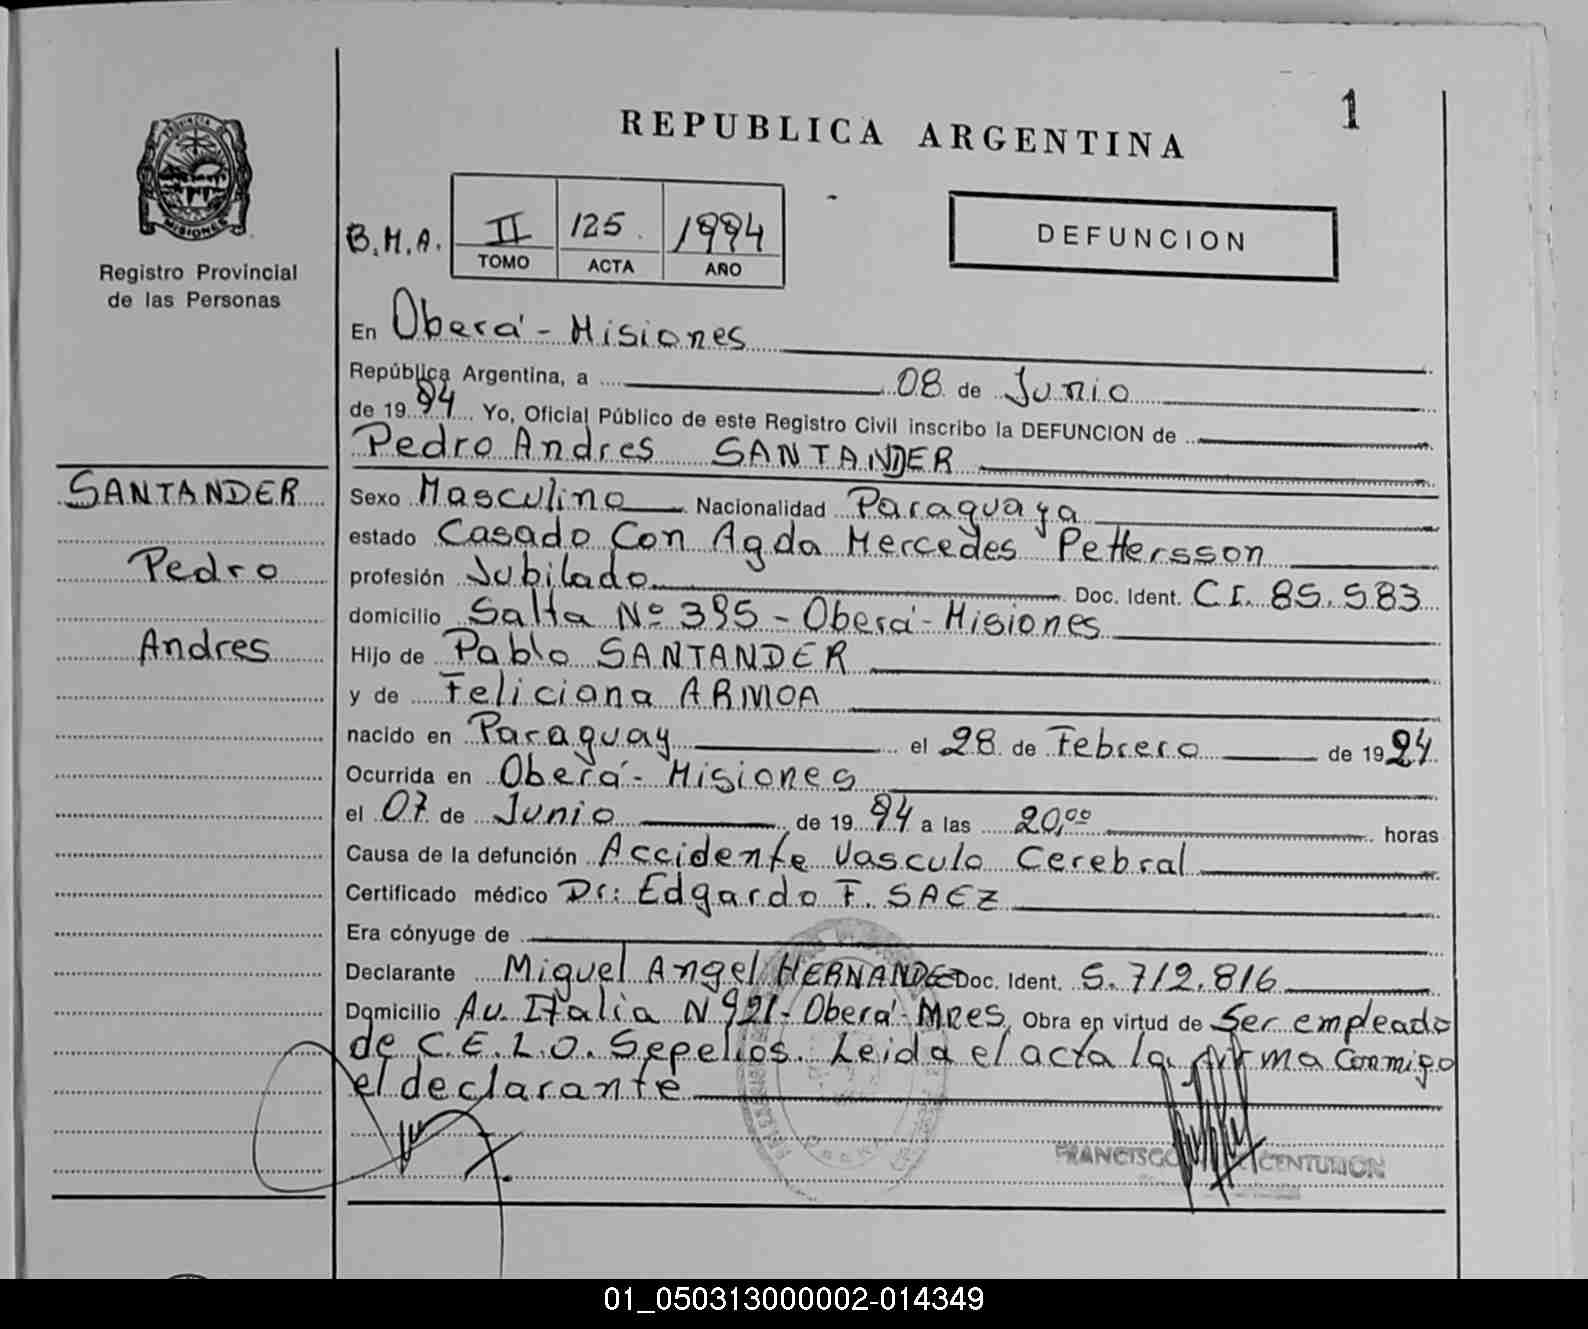 1
REPUBLICA ARGENTINA
PROVINCIA D
MISIONES
Registro Provincial
de las Personas
B.M.A. II 125. 1994
TOMO ACTA AÑO
DEFUNCION
En Oberá - Misiones
República Argentina, a 08 de Junio
de 19 94 Yo, Oficial Público de este Registro Civil inscribo la DEFUNCION de
Pedro Andres SANTANDER
SANTANDER
Pedro
Andres
Sexo Masculino Nacionalidad Paraguaya
estado Casado Con Agda Mercedes Pettersson
profesión Jubilado Doc. Ident. C.I. 85.583
domicilio Salta Nº 395 - Oberá - Misiones
Hijo de Pablo SANTANDER
y de Feliciana ARMOA
nacido en Paraguay el 28 de Febrero de 19 24
Ocurrida en Oberá - Misiones
el 07 de Junio de 19 94 a las 20,00 horas
Causa de la defunción Accidente Vasculo Cerebral
Certificado médico Dr: Edgardo F. SAEZ
Era cónyuge de
Declarante Miguel Angel HERNANDEZ Doc. Ident. 5.712.816
Domicilio Av. Italia N 921 - Oberá - Mnes, Obra en virtud de Ser empleado
de C.E.L.O. Sepelios. Leida el acta la firma Conmigo
el declarante
FRANCISCO CENTURION
01_050313000002-014349